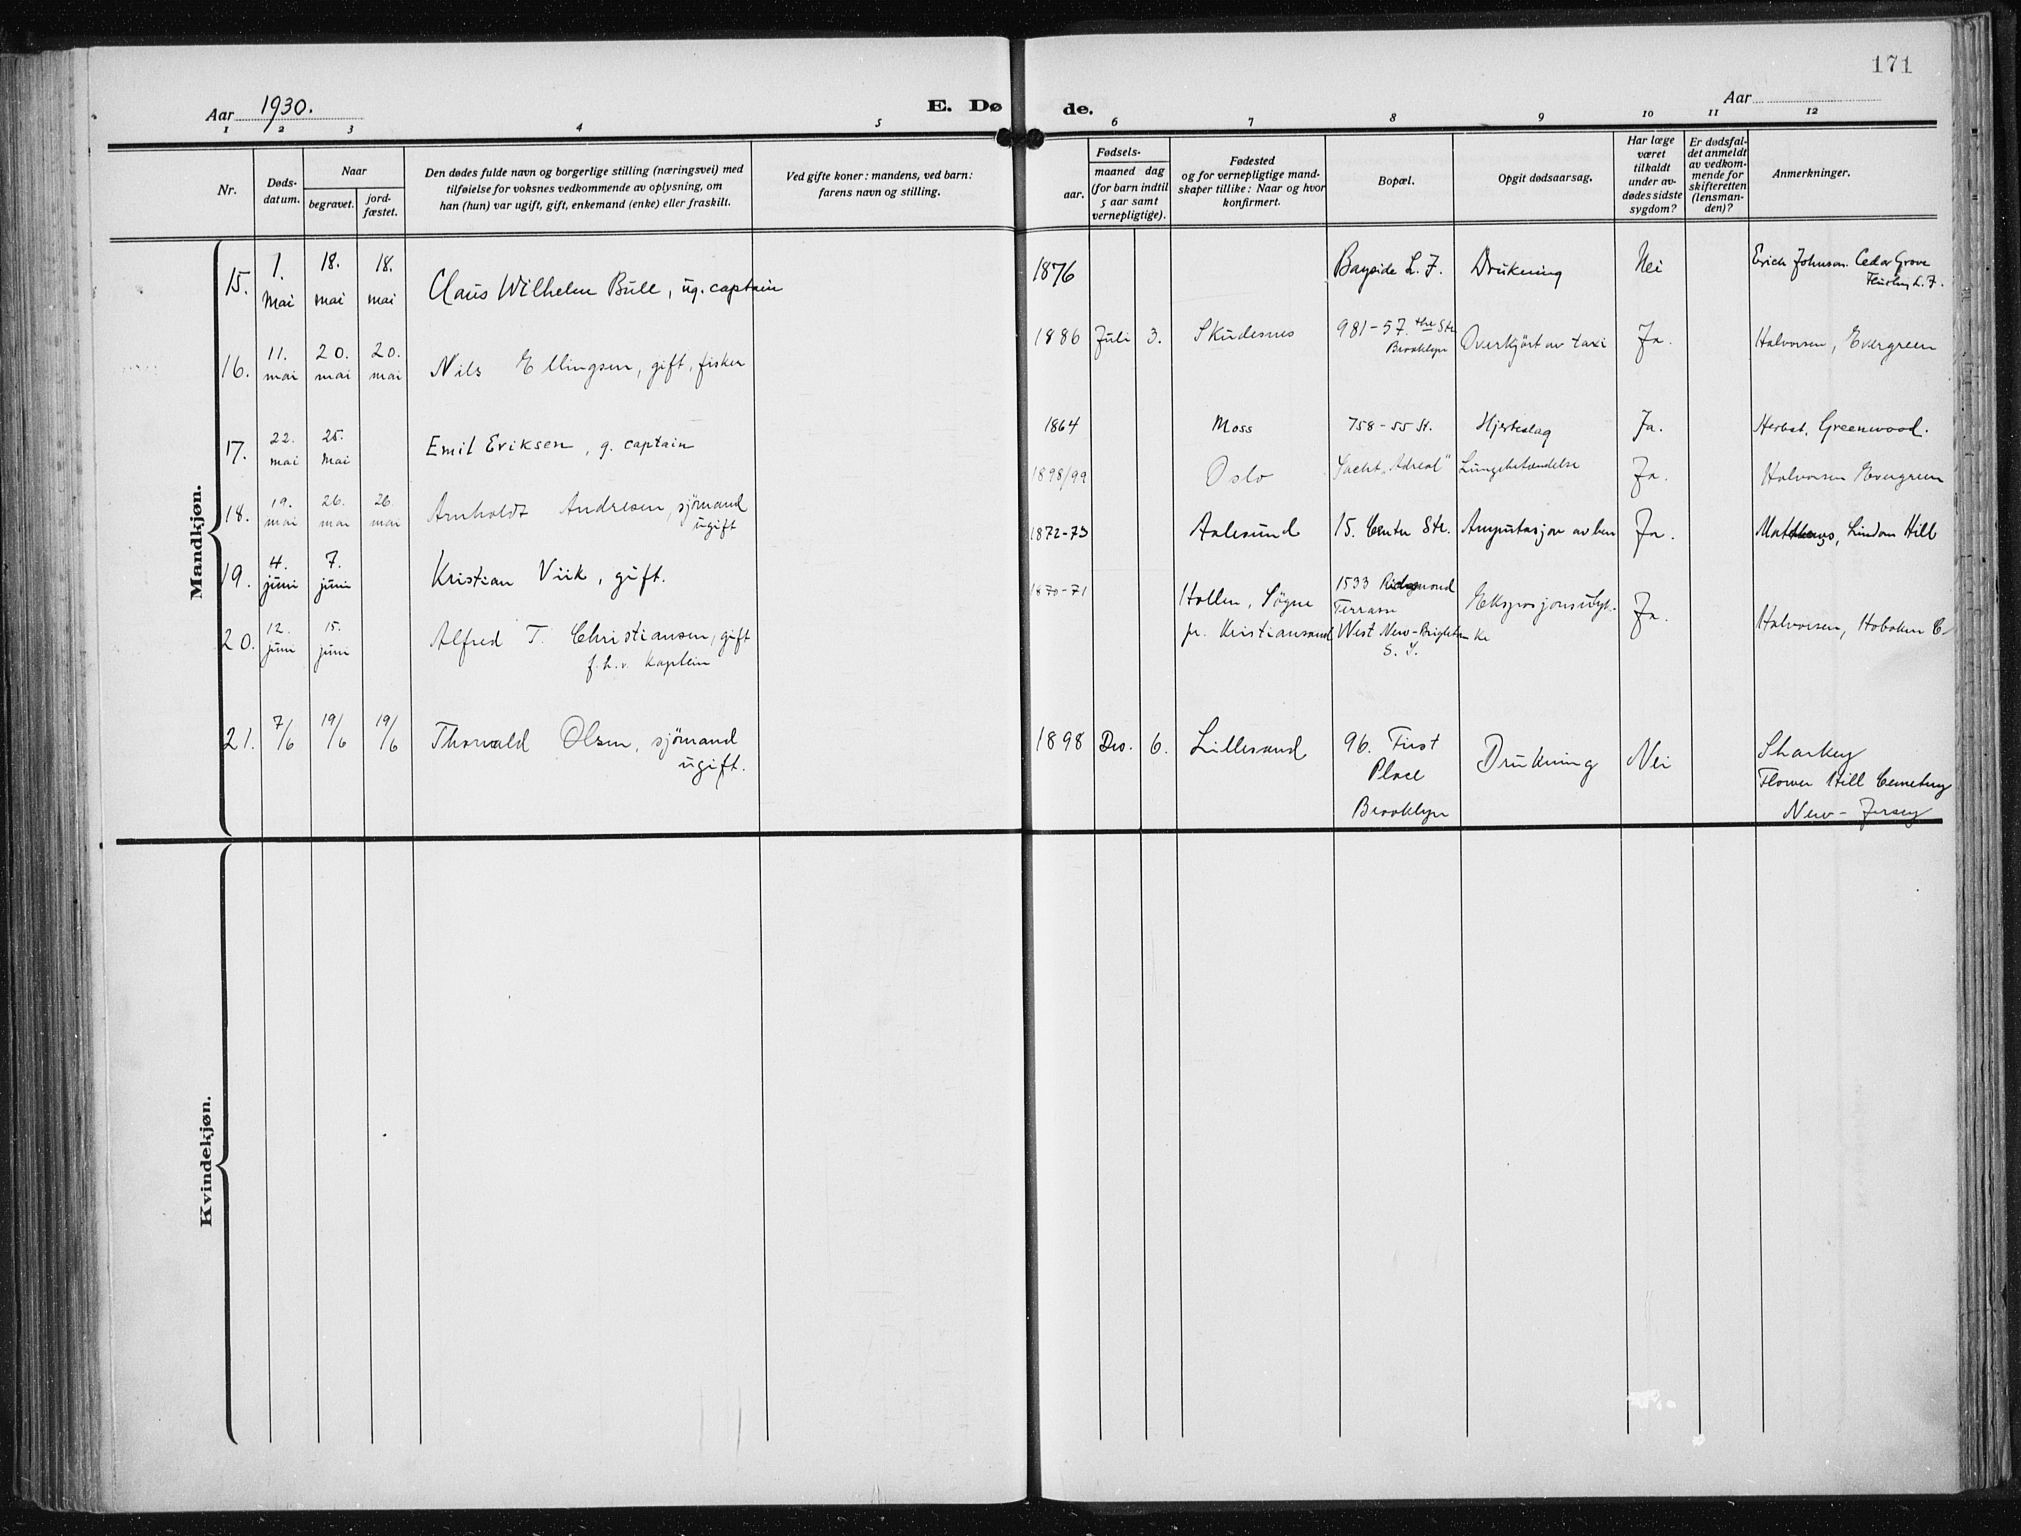 171
Aar 1930.
E. Døde.
Aar
1 2 3 4 5 6 7 8 9 10 11 12
Nr.
Døds-
datum.
Naar
begravet.
jord-
fæstet.
Den dødes fulde navn og borgerlige stilling (næringsvei) med
tilføielse for voksnes vedkommende av oplysning, om
han (hun) var ugift, gift, enkemand (enke) eller fraskilt.
Ved gifte koner: mandens, ved barn:
farens navn og stilling.
Fødsels-
aar.
maaned dag
(for barn indtil
5 aar samt
vernepligtige).
Fødested
og for vernepligtige mand-
skaper tillike: Naar og hvor
konfirmert.
Bopæl.
Opgit dødsaarsag.
Har læge
været
tilkaldt
under av-
dødes sidste
sygdom?
Er dødsfal-
det anmeldt
av vedkom-
mende for
skifteretten
(lensman-
den)?
Anmerkninger.
Mandkjøn.
15. 1. Mai 18. mai 18. mai Claus Wilhelm Bull, ug. captain 1876 Bayside L. I. Drukning Nei Erick Johnson. Cedar Grove
Flushing L. I.
16. 11. mai 20. mai 20. mai Nils Ellingsen, gift, fisker 1886 Juli 3. Skudesnes 981-57.the Str
Brooklyn Overkjört av taxi Ja. Halvorsen, Evergreen
17. 22. mai 25. Mai Emil Eriksen, g. captain 1864 Moss 758-55 St. Hjerteslag Ja. Herbst, Greenwood.
18. 19. mai 26. mai 26. mai Arnholdt Andresen, sjömand
ugift 1898/99 Oslo Yacht Lungebetændelse Ja. Halvorsen Evergreen
19. 4. juni 7. juni Kristian Viik, gift. 1872-73 Aalesund 15. Center Str. Amputasjon av ben Ja. Matthews, Linden Hill
20. 12. juni 15. juni Alfred T. Christiansen, gift
f. h. v. kaptein 1870-71 Hollen, Søgne
pr. Kristiansand 1533 Richmond
Terrasse
West New-Brighton
S. I. Ja. Halvorsen, Hoboken C
21. 7/6 19/6 19/6 Thorvald Olsen, sjömand
ugift. 1898 Des. 6. Lillesand 96. First
Place
Brooklyn Drukning Nei Sharkey
Flower Hill Cemetery
New-Jersey
Kvindekjøn.